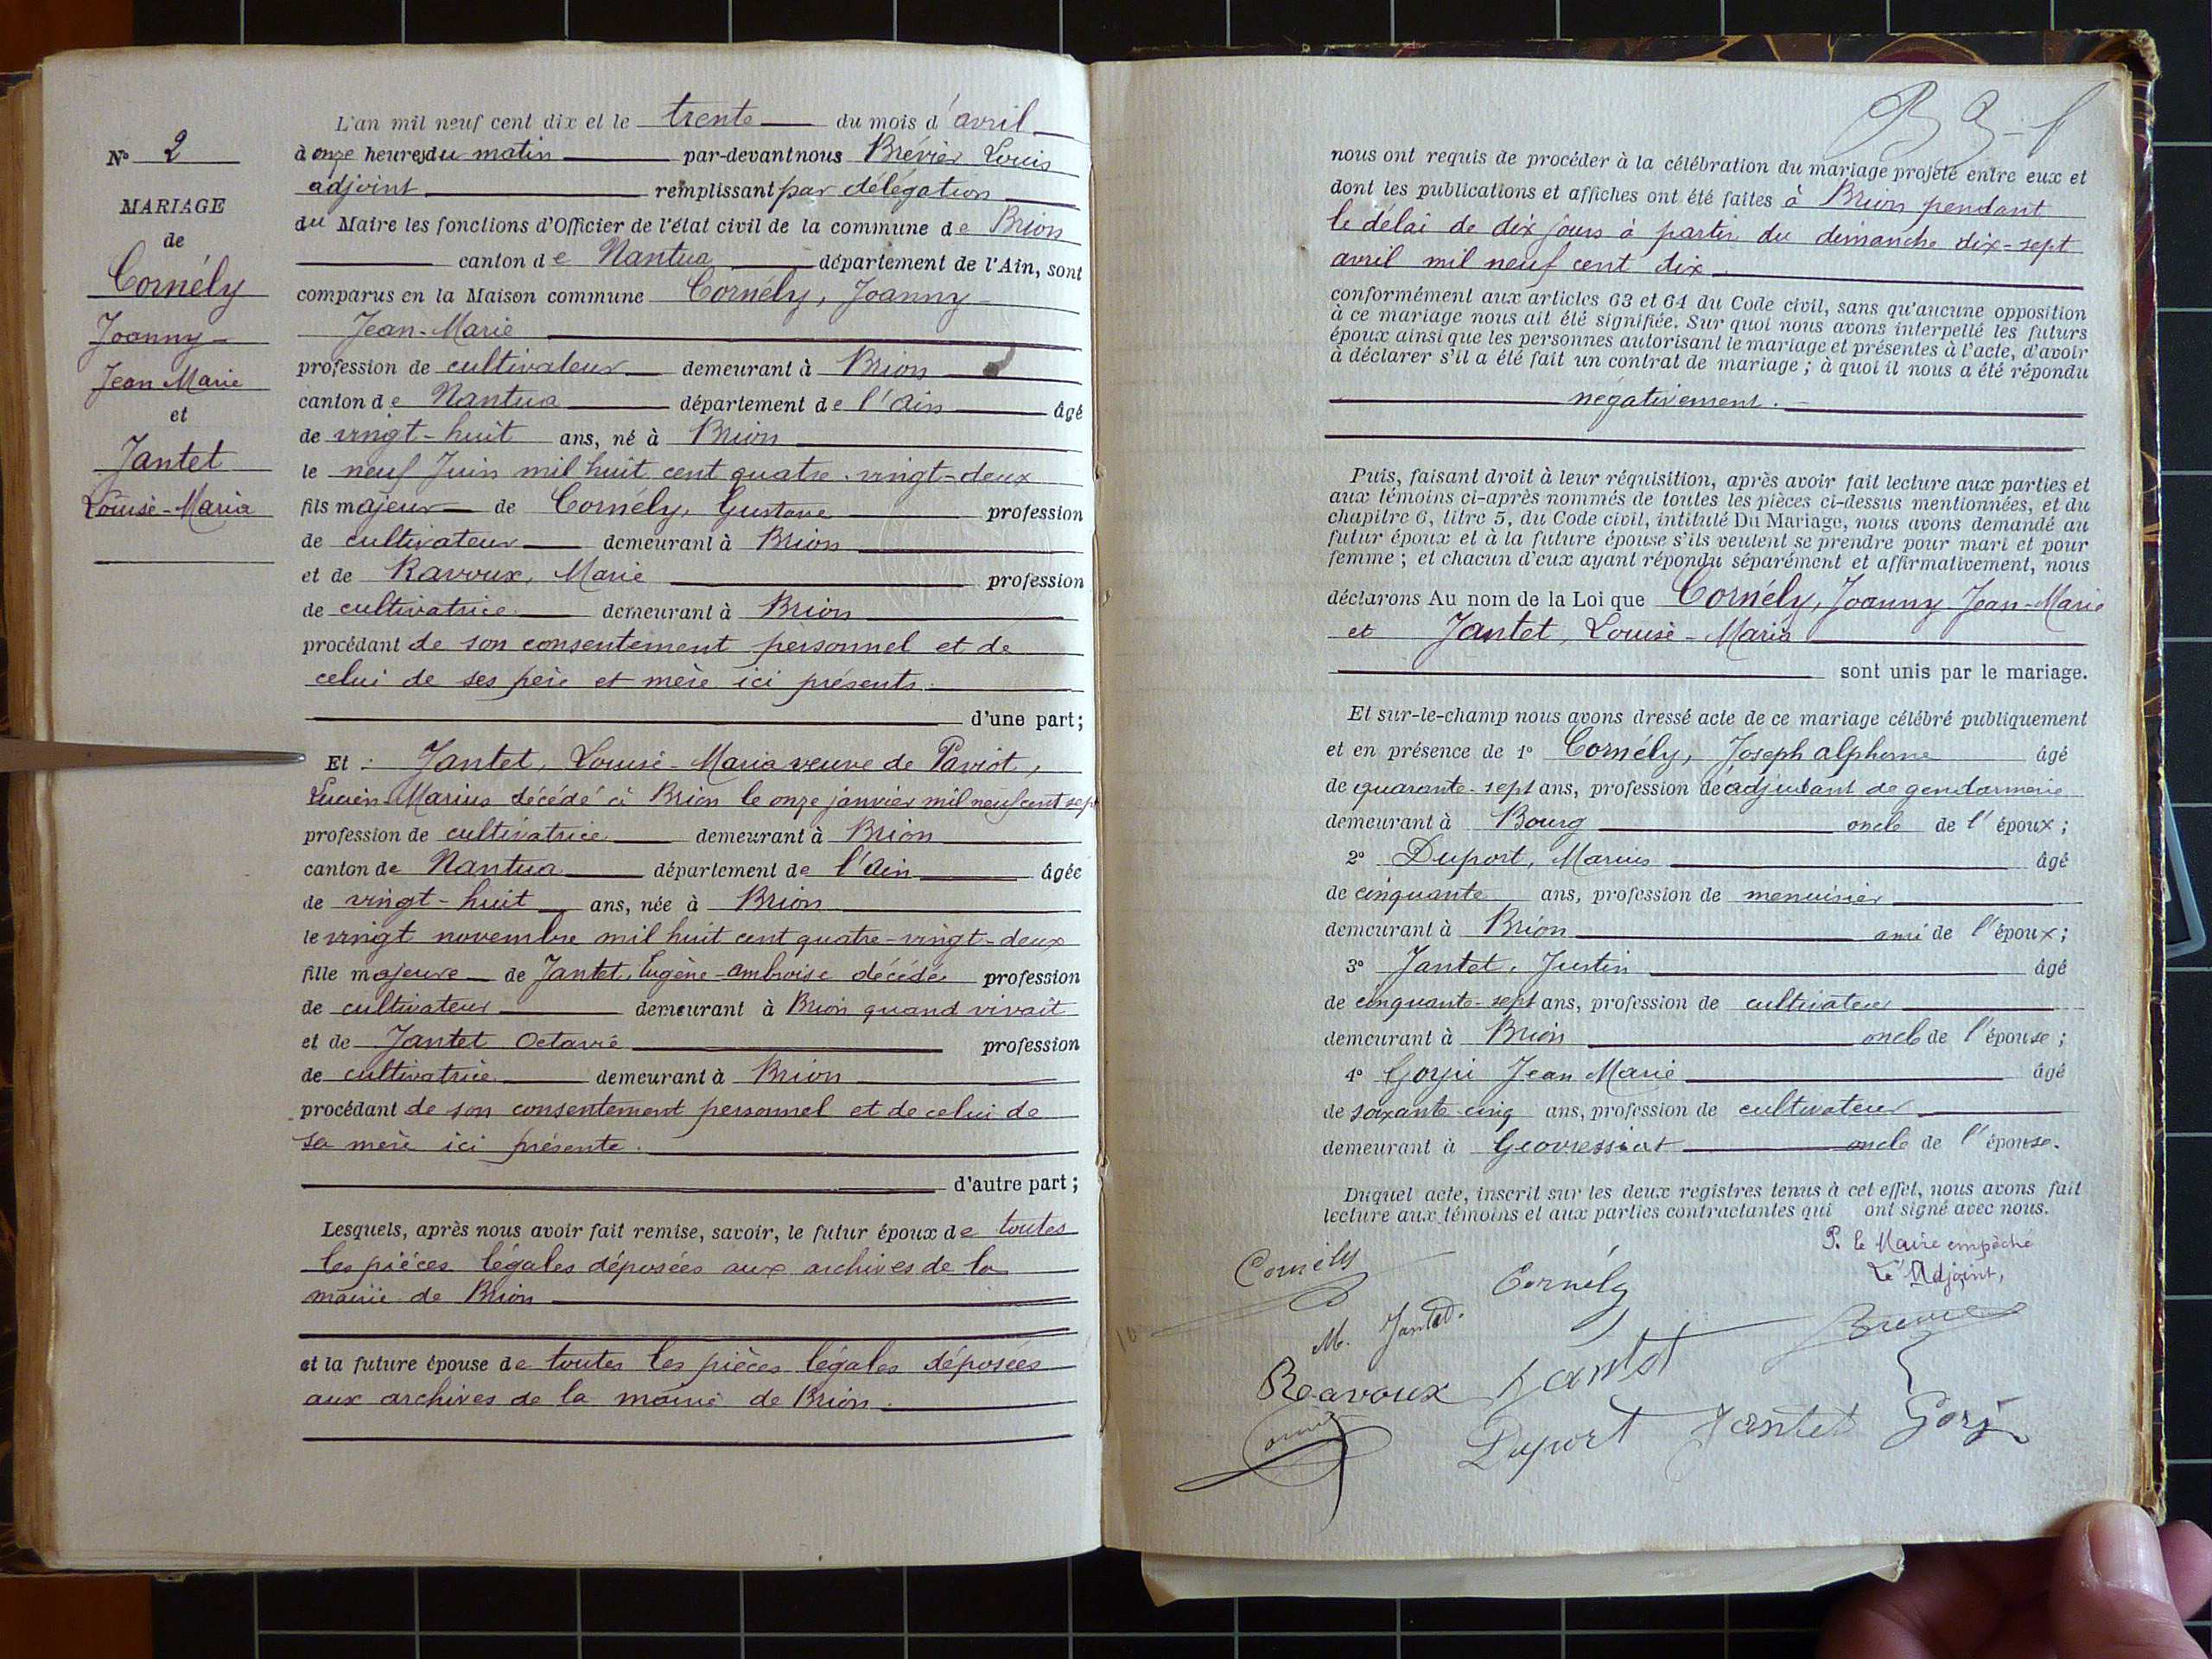 N° 2
MARIAGE
de
Cornély
Joanny-
Jean Marie
et
Jantet
Louise-Maria
L'an mil neuf cent dix et le trente du mois d'avril
à onze heures du matin par-devant nous Brévier Louis
adjoint remplissant par délégation
du Maire les fonctions d'Officier de l'état civil de la commune de Brion
canton de Nantua département de l'Ain, sont
comparus en la Maison commune Cornély, Joanny-
Jean-Marie
profession de cultivateur demeurant à Brion
canton de Nantua département de l'Ain âgé
de vingt-huit ans, né à Brion
le neuf Juin mil huit cent quatre-vingt-deux
fils majeur de Cornély, Gustave profession
de cultivateur demeurant à Brion
et de Ravoux, Marie profession
de cultivatrice demeurant à Brion
procédant de son consentement personnel et de
celui de ses père et mère ici présents.
d'une part;
Et : Jantet, Louise-Maria veuve de Paviot,
Lucien-Marius décédé à Brion le onze janvier mil neuf cent sept
profession de cultivatrice demeurant à Brion
canton de Nantua département de l'Ain âgée
de vingt-huit ans, née à Brion
le vingt novembre mil huit cent quatre-vingt-deux
fille majeure de Jantet, Eugène-Ambroise décédé profession
de cultivateur demeurant à Brion quand vivait
et de Jantet Octavie profession
de cultivatrice demeurant à Brion
procédant de son consentement personnel et de celui de
sa mère ici présente.
d'autre part;
Lesquels, après nous avoir fait remise, savoir, le futur époux de toutes
les pièces légales déposées aux archives de la
mairie de Brion
et la future épouse de toutes les pièces légales déposées
aux archives de la mairie de Brion.
nous ont requis de procéder à la célébration du mariage projeté entre eux et
dont les publications et affiches ont été faites à Brion pendant
le délai de dix jours à partir du dimanche dix-sept
avril mil neuf cent dix
conformément aux articles 63 et 64 du Code civil, sans qu'aucune opposition
à ce mariage nous ait été signifiée. Sur quoi nous avons interpellé les futurs
époux ainsi que les personnes autorisant le mariage et présentes à l'acte, d'avoir
à déclarer s'il a été fait un contrat de mariage ; à quoi il nous a été répondu
négativement.
Puis, faisant droit à leur réquisition, après avoir fait lecture aux parties et
aux témoins ci-après nommés de toutes les pièces ci-dessus mentionnées, et du
chapitre 6, titre 5, du Code civil, intitulé Du Mariage, nous avons demandé au
futur époux et à la future épouse s'ils veulent se prendre pour mari et pour
femme ; et chacun d'eux ayant répondu séparément et affirmativement, nous
déclarons Au nom de la Loi que Cornély, Joanny Jean-Marie
et Jantet, Louise-Maria
sont unis par le mariage.
Et sur-le-champ nous avons dressé acte de ce mariage célébré publiquement
et en présence de 1° Cornély, Joseph alphonse âgé
de quarante-sept ans, profession de adjudant de gendarmerie
demeurant à Bourg oncle de l'époux ;
2° Duport, Marius âgé
de cinquante ans, profession de menuisier
demeurant à Brion ami de l'époux ;
3° Jantet, Justin âgé
de cinquante-sept ans, profession de cultivateur
demeurant à Brion oncle de l'épouse ;
4° Goyi Jean Marie âgé
de soixante-cinq ans, profession de cultivateur
demeurant à Géovressiat oncle de l'épouse.
Duquel acte, inscrit sur les deux registres tenus à cet effet, nous avons fait
lecture aux témoins et aux parties contractantes qui ont signé avec nous.
P. le Maire empêché
Le Adjoint,
Cornély
Cornély
M. Jantet.
Reavoux Jantet
Duport Jantet